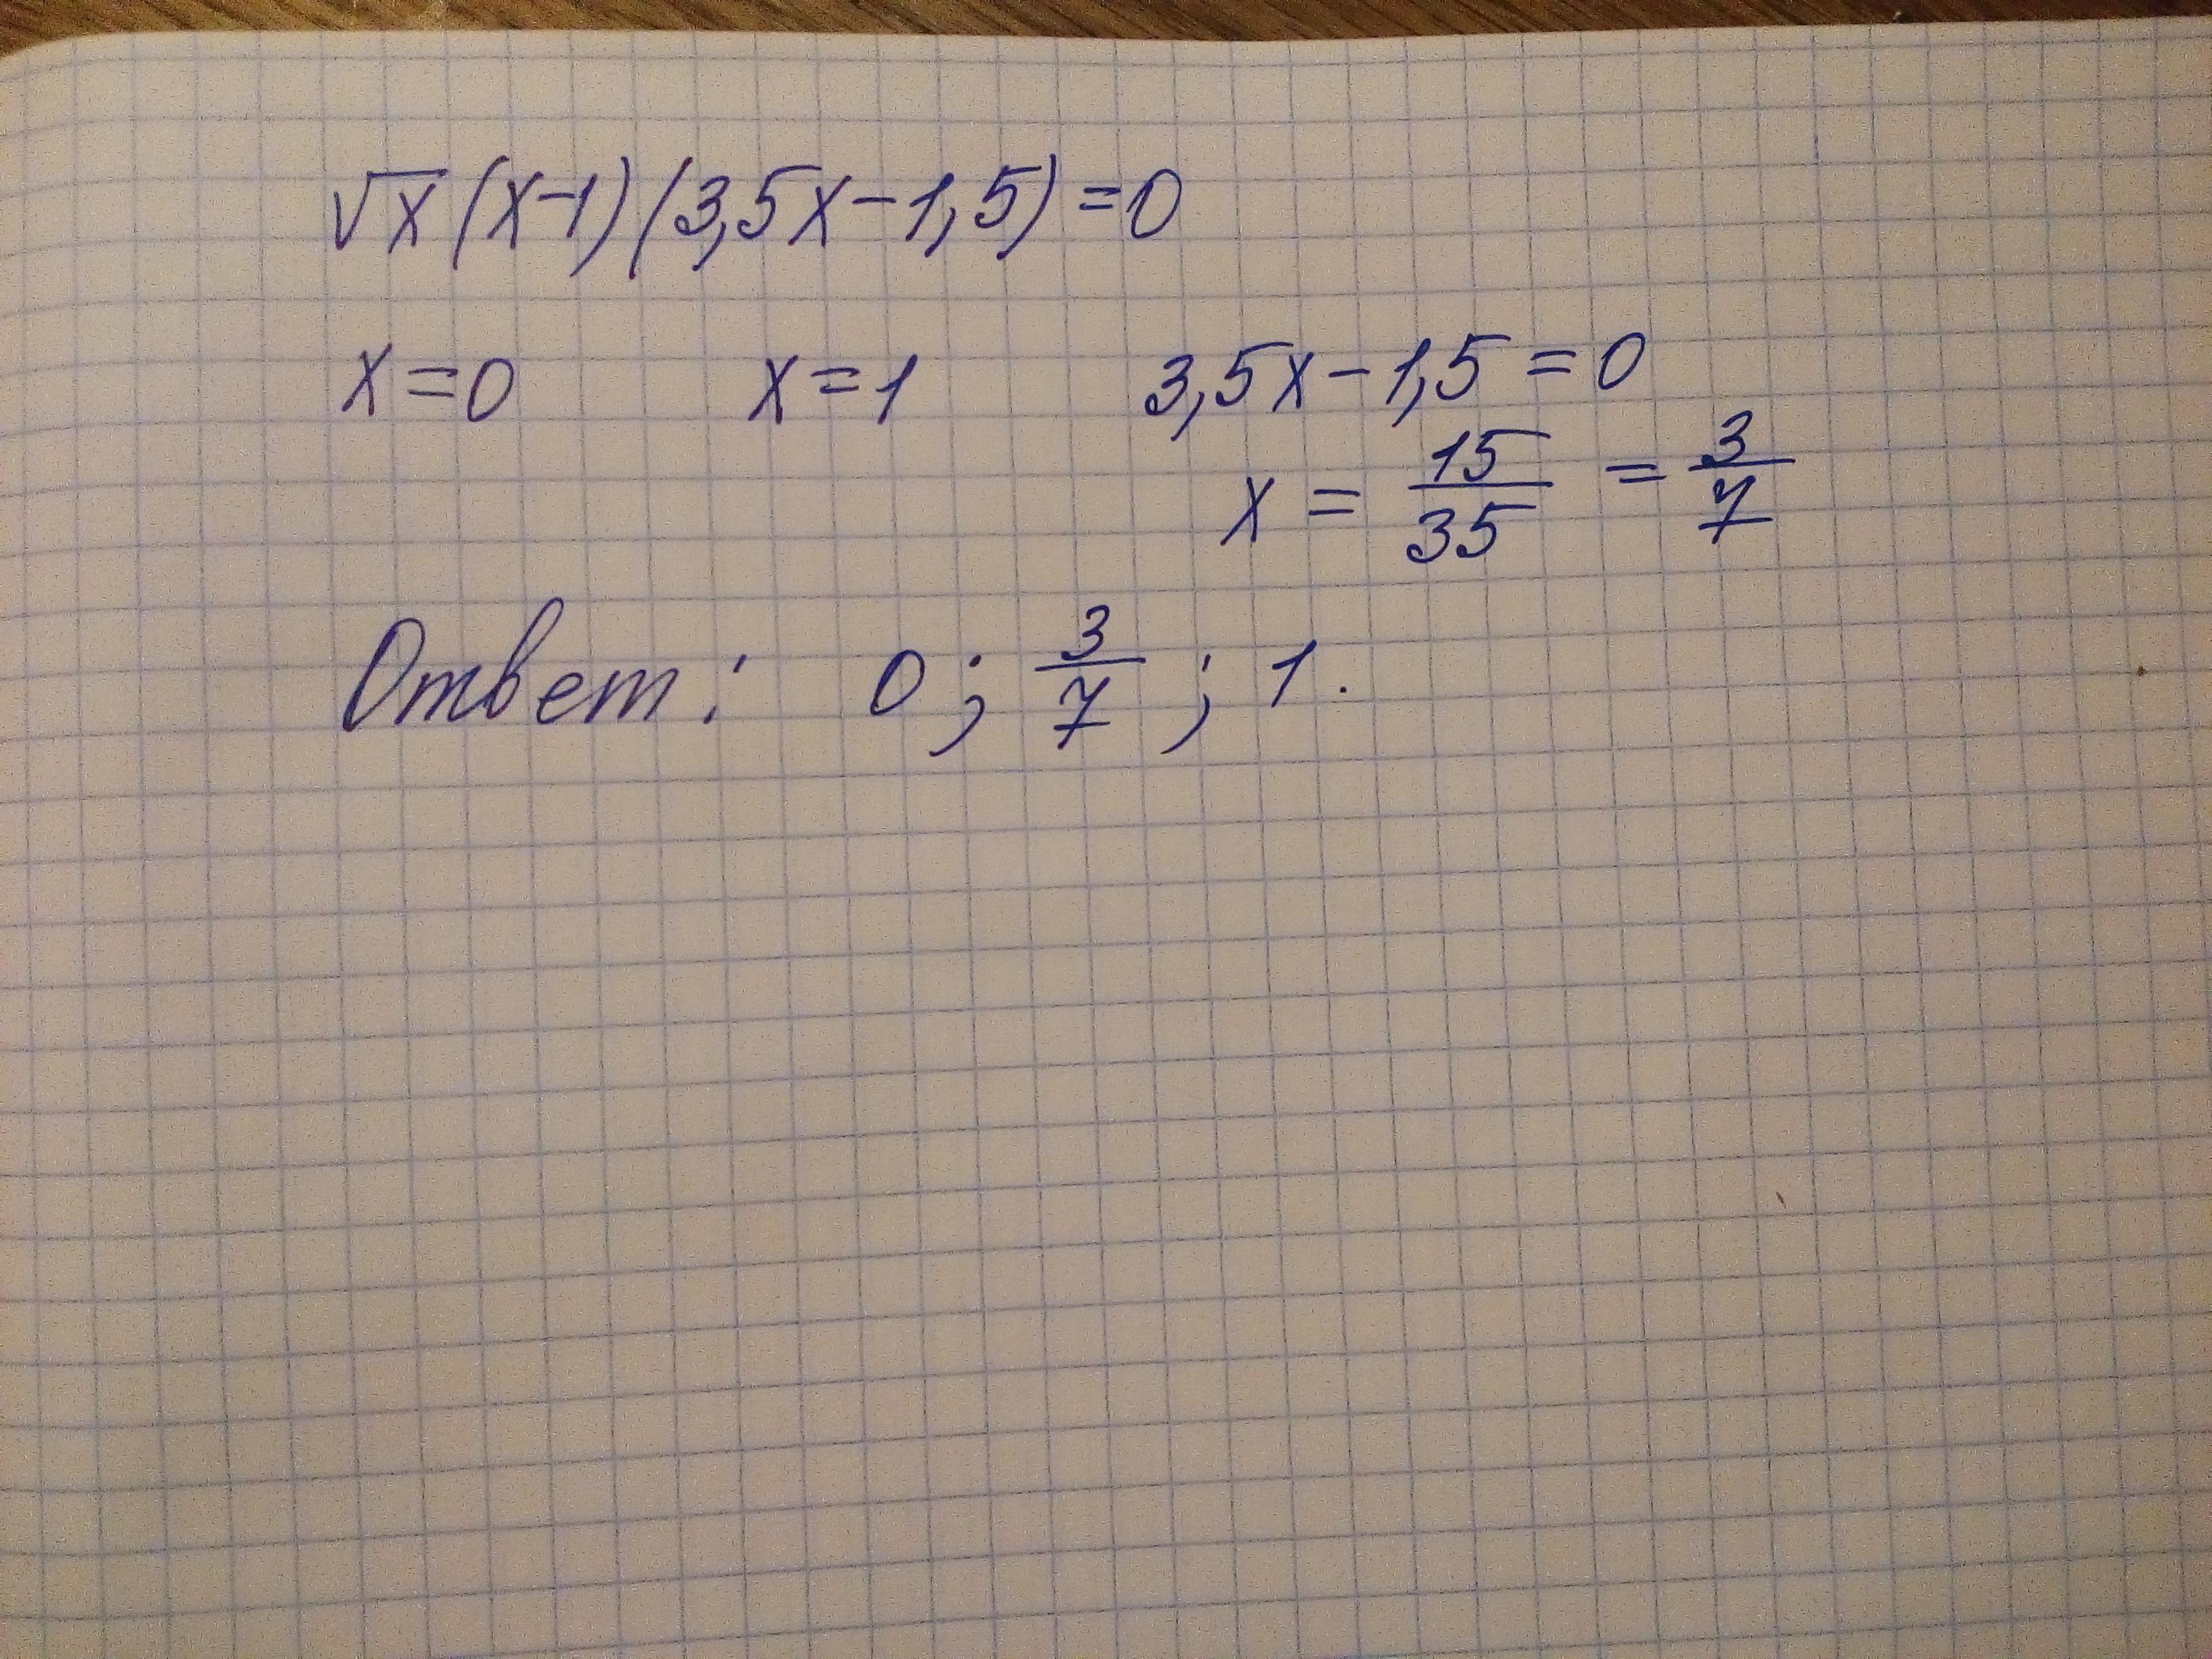 √x (x-1)(3,5x-1,5)=0
x=0 x=1 3,5x-1,5=0
x = 15/35 = 3/7
Ответ: 0; 3/7; 1.